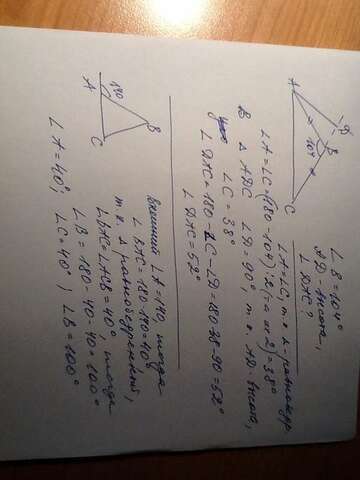 ∠B=104°
AD-высота,
∠DAC?
∠A=∠C, т.к. Δ-равнобедр.
∠A=∠C=(180-104):2(∠A и ∠C)=38°
В Δ ADC ∠D=90°, т.к. AD-высота,
∠C=38°
∠DAC=180-∠C-∠D=180-38-90=52°
∠DAC=52°
A
D
B
104°
C
Внешний ∠A=140, тогда
∠BAC=180-140=40°,
т.к. Δ равнобедренный,
∠BAC=∠ACB=40°, тогда
∠B=180-40-40=100°
∠A=40°, ∠C=40°, ∠B=100°
140
A
B
C